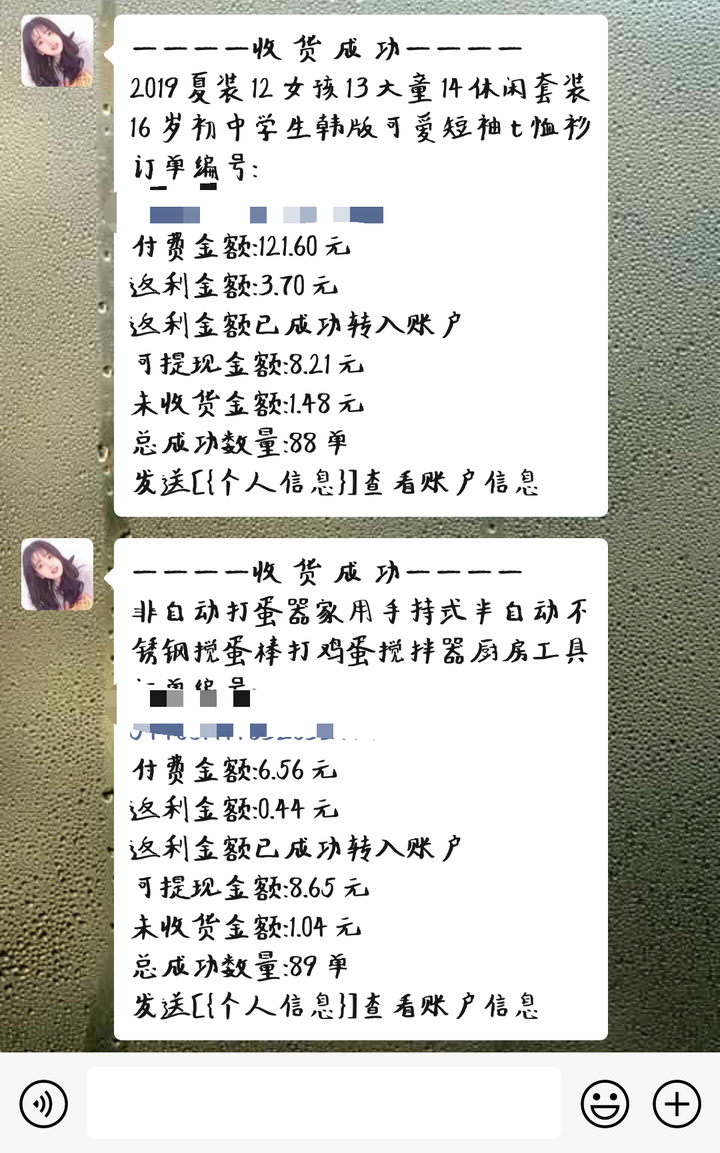 ————收货成功————
2019夏装12女孩13大童14休闲套装
16岁初中学生韩版可爱短袖t恤衫
订单编号:
付费金额:121.60元
返利金额:3.70元
返利金额已成功转入账户
可提现金额:8.21元
未收货金额:1.48元
总成功数量:88单
发送[{个人信息}]查看账户信息
————收货成功————
非自动打蛋器家用手持式半自动不
锈钢搅蛋棒打鸡蛋搅拌器厨房工具
订单编号:
付费金额:6.56元
返利金额:0.44元
返利金额已成功转入账户
可提现金额:8.65元
未收货金额:1.04元
总成功数量:89单
发送[{个人信息}]查看账户信息